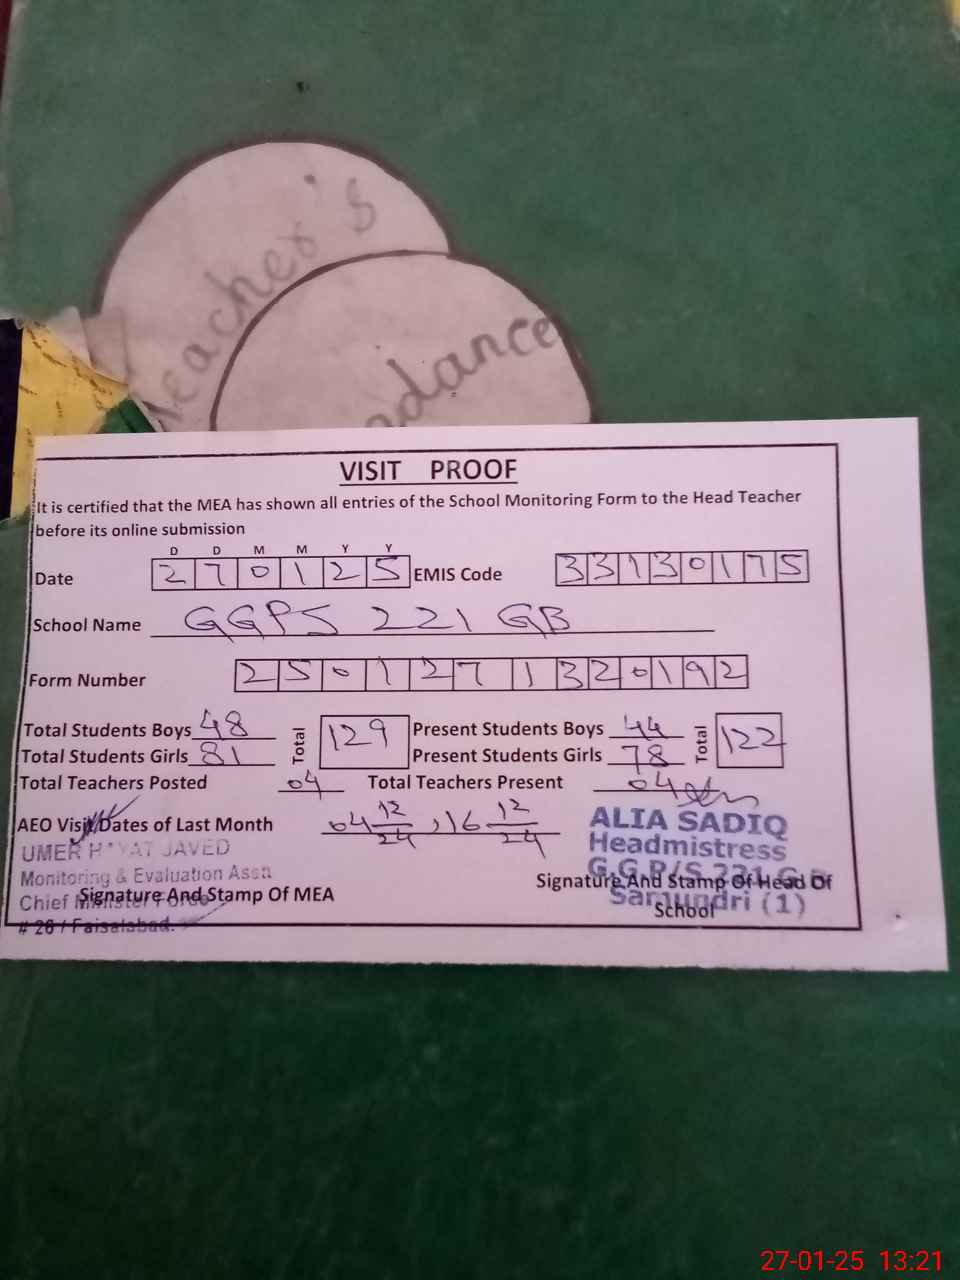 Teacher's
adance
VISIT PROOF
It is certified that the MEA has shown all entries of the School Monitoring Form to the Head Teacher
before its online submission
D D M M Y Y
Date 270125 EMIS Code 33130175
School Name GGPS 221 GB
Form Number 2501271320192
Total Students Boys 48 Total 129 Present Students Boys 44 Total 122
Total Students Girls 81 Present Students Girls 78
Total Teachers Posted 04 Total Teachers Present 04
AEO Visit Dates of Last Month 04 12/24, 16 12/24
UMER HAYAT JAVED
Monitoring & Evaluation Asstt
Chief Minister Force
# 26 / Faisalabad.
Signature And Stamp Of MEA
ALIA SADIQ
Headmistress
G.G.P/S 221 G.B
Samundri (1)
Signature And Stamp Of Head Of
School
27-01-25 13:21